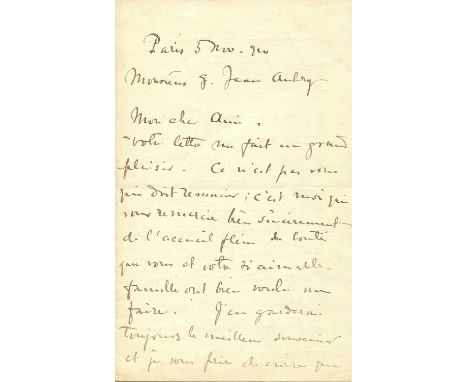 Paris 5 Nov. 910
Monsieur G. Jean Aubry
Mon cher Ami,
Votre lettre me fait un grand
plaisir. Ce n'est pas vous
qui doit remercier ; c'est moi qui
vous remercie bien sincèrement
de l'accueil plein de bonté
que vous et votre si aimable
famille ont bien voulu me
faire. J'en garderai
toujours le meilleur souvenir
et je vous prie de croire que